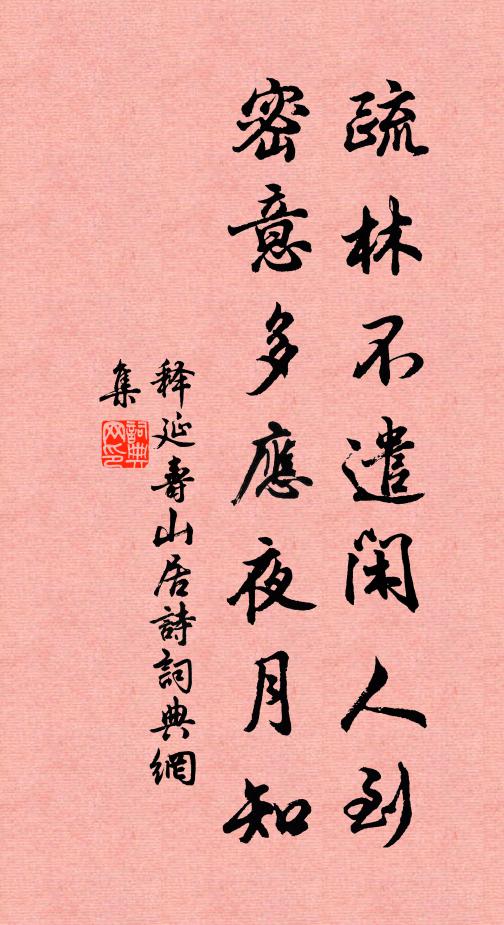 疏林不遣閑人到
密意多應夜月知
释延壽山居詩詞典網
集
詞典
网印